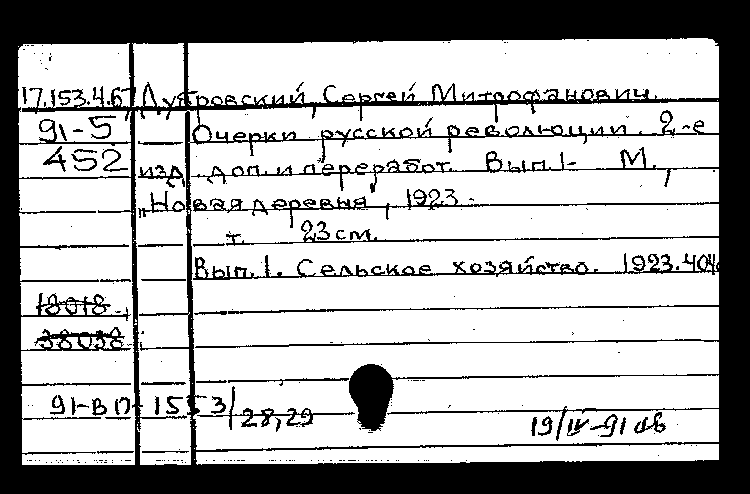 17.153.4.67 Дубровский, Сергей Митрофанович.
91-5 Очерки русской революции. 2-е
452 изд. доп. и переработ. Вып. 1- М.,
„Новая деревня", 1923-
т. 23 см.
Вып. 1. Сельское хозяйство. 1923. 404
18018
38038
91-ВП-1553/28,29
19/IV-91